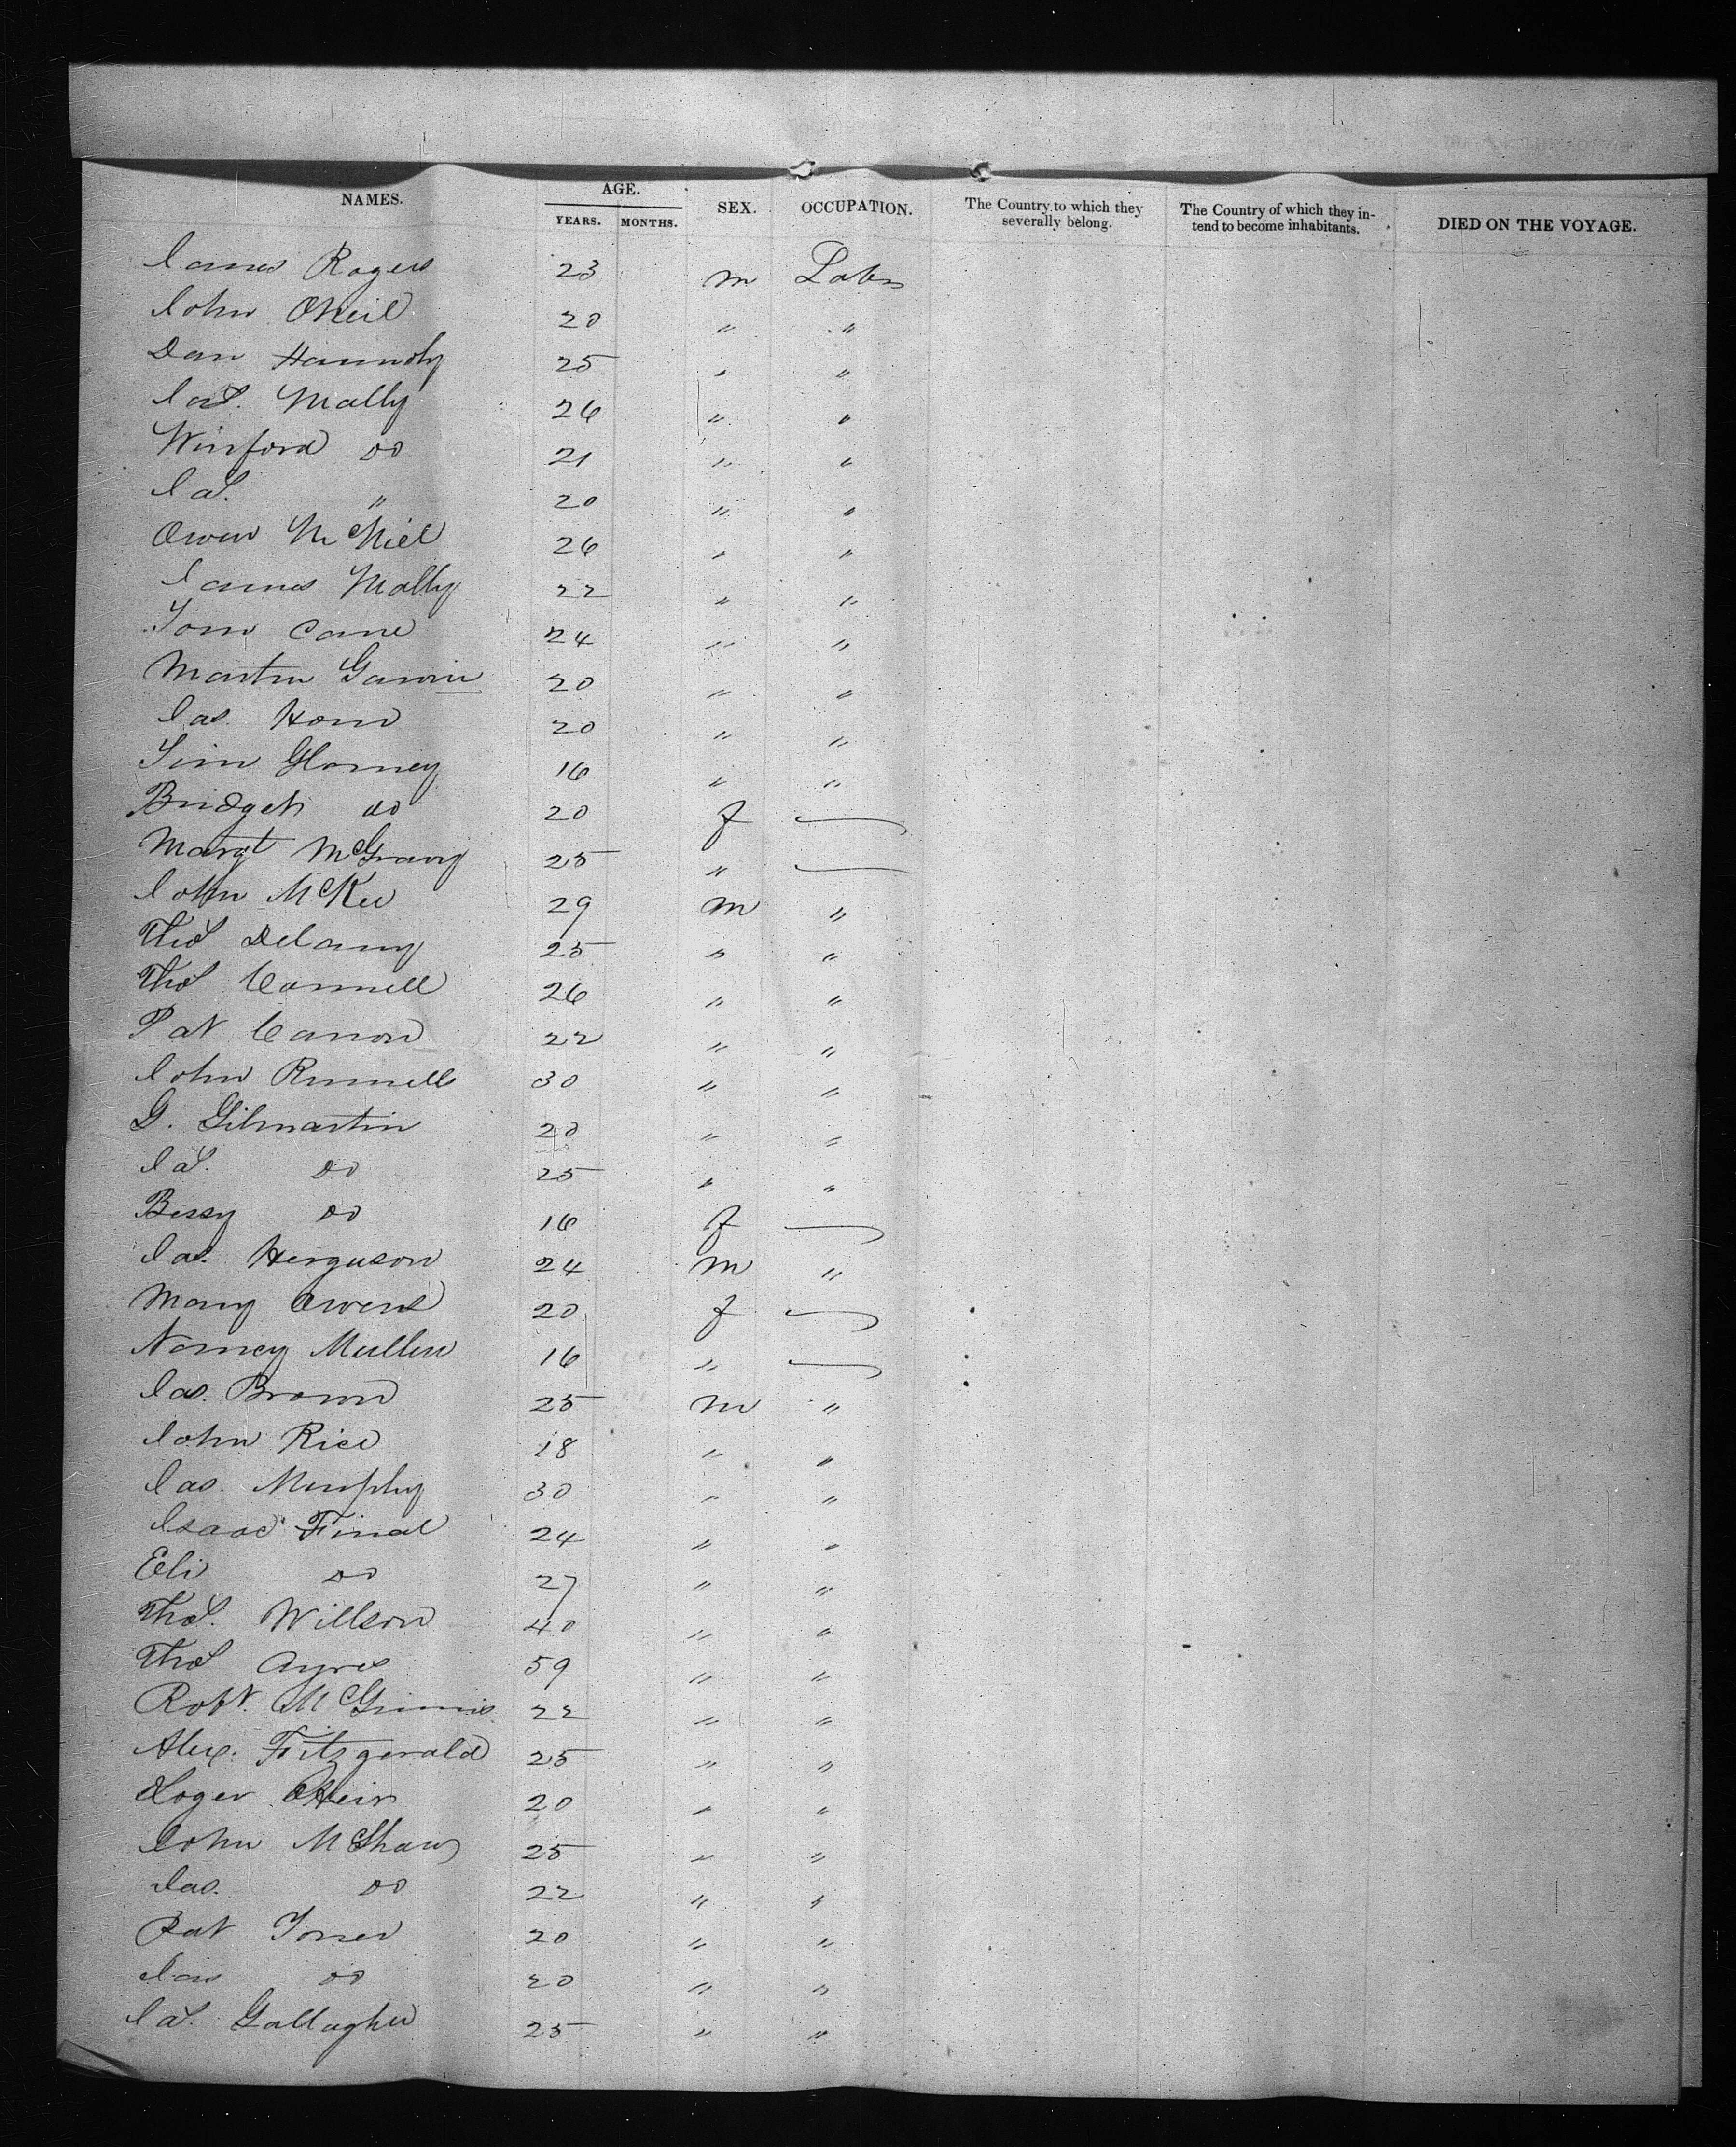 NAMES. AGE. SEX. OCCUPATION. The Country to which they severally belong. The Country of which they intend to become inhabitants. DIED ON THE VOYAGE.
YEARS. MONTHS.
James Rogers 23 m Labr
John ONeil 20 " "
Dan 25 " "
Jas. Mally 26 " "
Winford do 21 " "
Jas. " 20 " "
Owen McNiel 26 " "
James Mally 22 " "
Tom Cane 24 " "
Martin Garvin 20 " "
Jas. 20 " "
Tim Glorney 16 " "
Bridget do 20 f —
Margt 25 " —
John McKee 29 m "
Thos Delany 25 " "
Thos Connell 26 " "
Pat Canon 22 " "
John Runnells 30 " "
G. Gilmartin 20 " "
Jas. do 25 " "
Bessy do 16 f —
Jas. Herguson 24 m "
Mary Owens 20 f —
Nancy Mullen 16 " —
Jas. Brown 25 m "
John Rice 18 " "
Jas. Murphy 30 " "
Isaac Final 24 " "
Eli do 27 " "
Thos. Willson 40 " "
Thos Ayres 59 " "
Robt. McGinnis 22 " "
Alex. Fitzgerald 25 " "
20 " "
John McShaw 25 " "
Jas. do 22 " "
Pat Toner 20 " "
Jas do 20 " "
Jas. Gallagher 25 " "